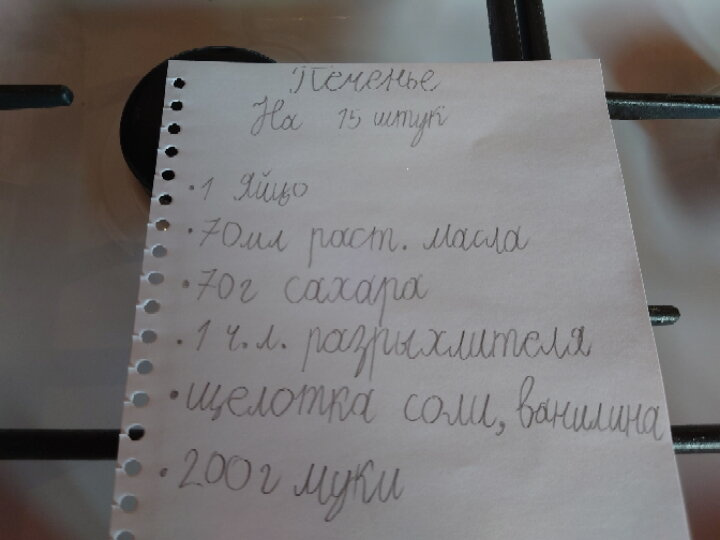 Печенье
На 15 штук
• 1 Яйцо
• 70мл раст. масла
• 70г сахара
• 1 ч.л. разрыхлителя
• щепотка соли, ванилина
• 200г муки